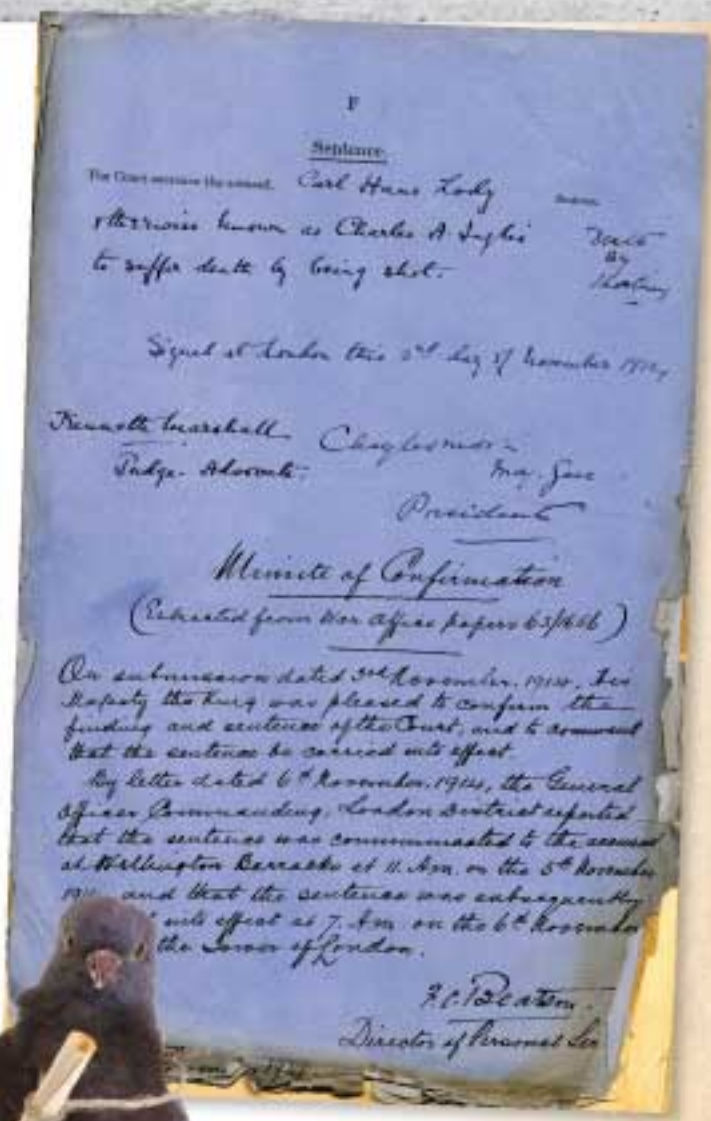 F
Sentence.
The Court sentence the accused, Carl Hans Lody
otherwise known as Charles A Inglis
to suffer death by being shot.
Death
By
Shooting
Signed at London this 2nd day of November 1914
Kenneth Marshall
Judge-Advocate.
Cheylesmore
Maj. Gen
President
Minute of Confirmation
(Extracted from War Office papers 63/1666)
On submission dated 3rd November, 1914, His
Majesty the King was pleased to confirm the
finding and sentence of the Court, and to command
that the sentence be carried into effect.
By letter dated 6th November, 1914, the General
Officer Commanding, London District reported
that the sentence was communicated to the accused
at Wellington Barracks at 11. Am. on the 5th November
and that the sentence was subsequently
into effect at 7. Am on the 6th November
the Tower of London.
F.C. Beatson.
Director of Personal Ser